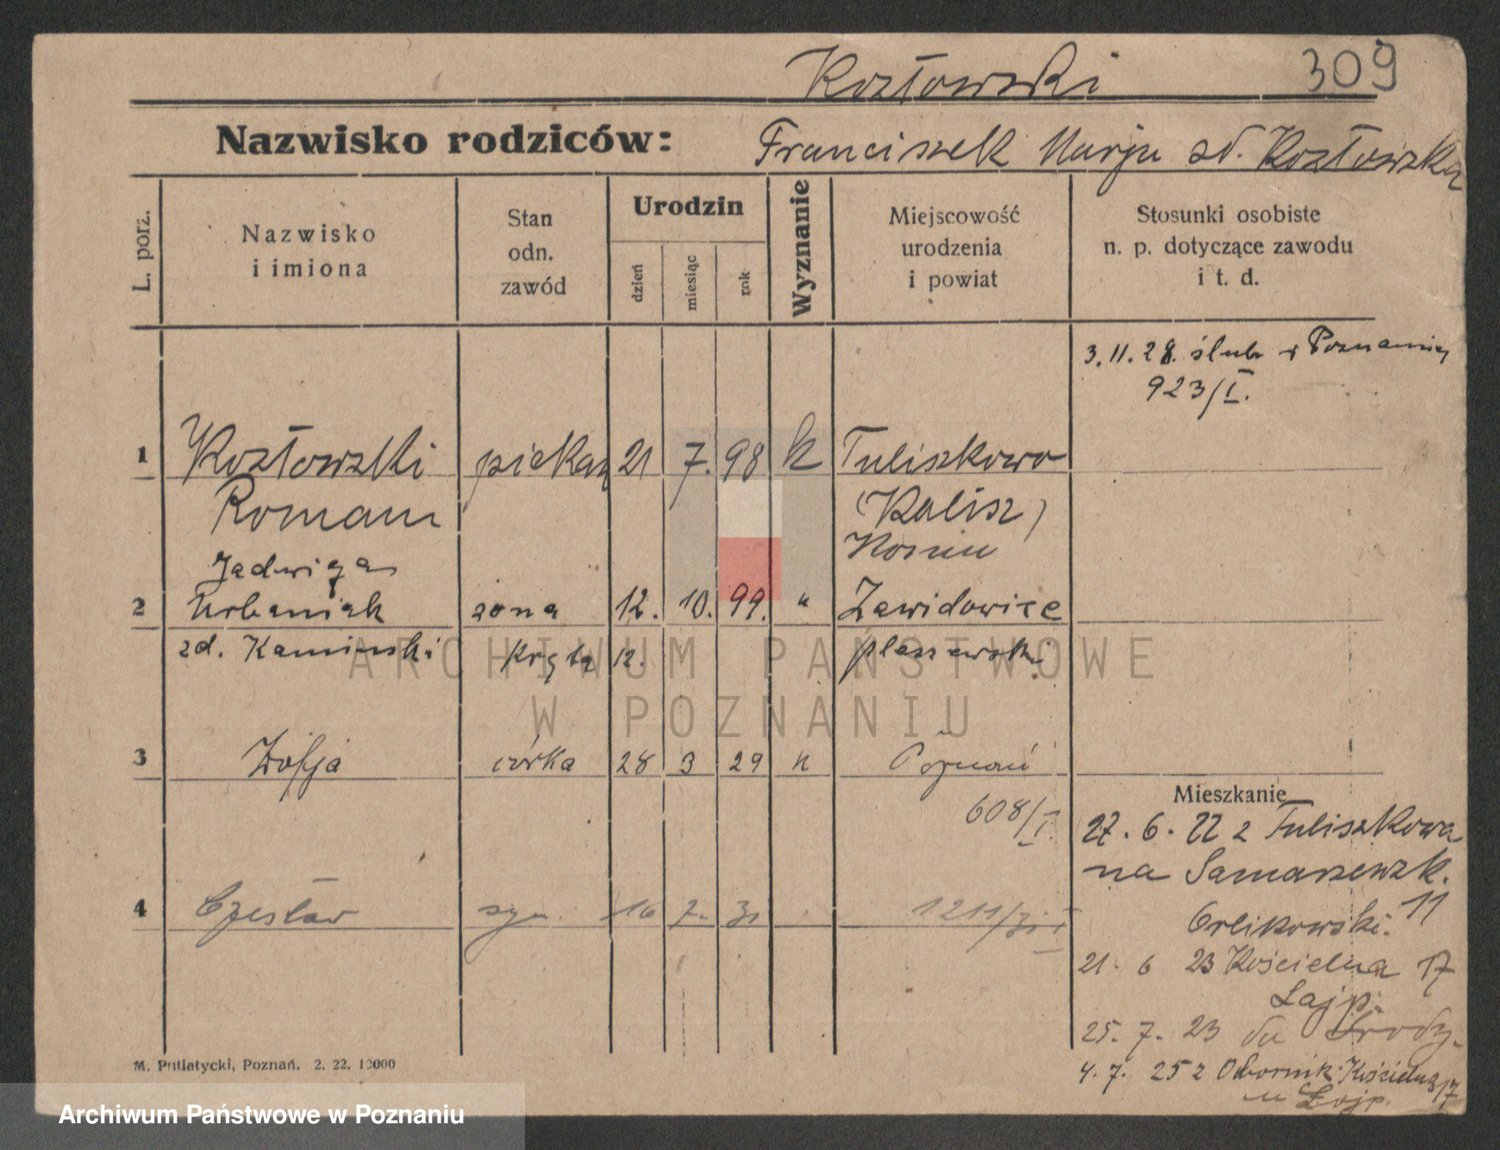 Kozłowski 309
Nazwisko rodziców: Franciszek Marja zd. Kozłowska
L. porz.
Nazwisko
i imiona
Stan
odn.
zawód
Urodzin
dzień
miesiąc
rok
Wyznanie
Miejscowość
urodzenia
i powiat
Stosunki osobiste
n. p. dotyczące zawodu
i t. d.
3.11.28. ślub w Poznaniu
923/I.
1 Kozłowski piekarz 21 7. 98 k Tuliszkowo
Roman (Kalisz)
Konin
Jadwiga
2 Urbaniak żona 12. 10. 99. " Zawidowice
zd. Kaminski 12. pleszewski
3 Zofja córka 28 3 29 k Poznań
608/I.
Mieszkanie
27. 6. 22 z Tuliszkowa
na Samarzewsk.
4 Czesław syn 16 7. 31 1211/31 I
Orlikowski. 11
21. 6 23 Kościelna 17
Łajp.
25. 7. 23 do Środy.
4. 7. 25 z Obornik Kościelna 17
u Łajp.
M. Putiatycki, Poznań. 2. 22. 10000
ARCHIWUM PAŃSTWOWE
W POZNANIU
Archiwum Państwowe w Poznaniu